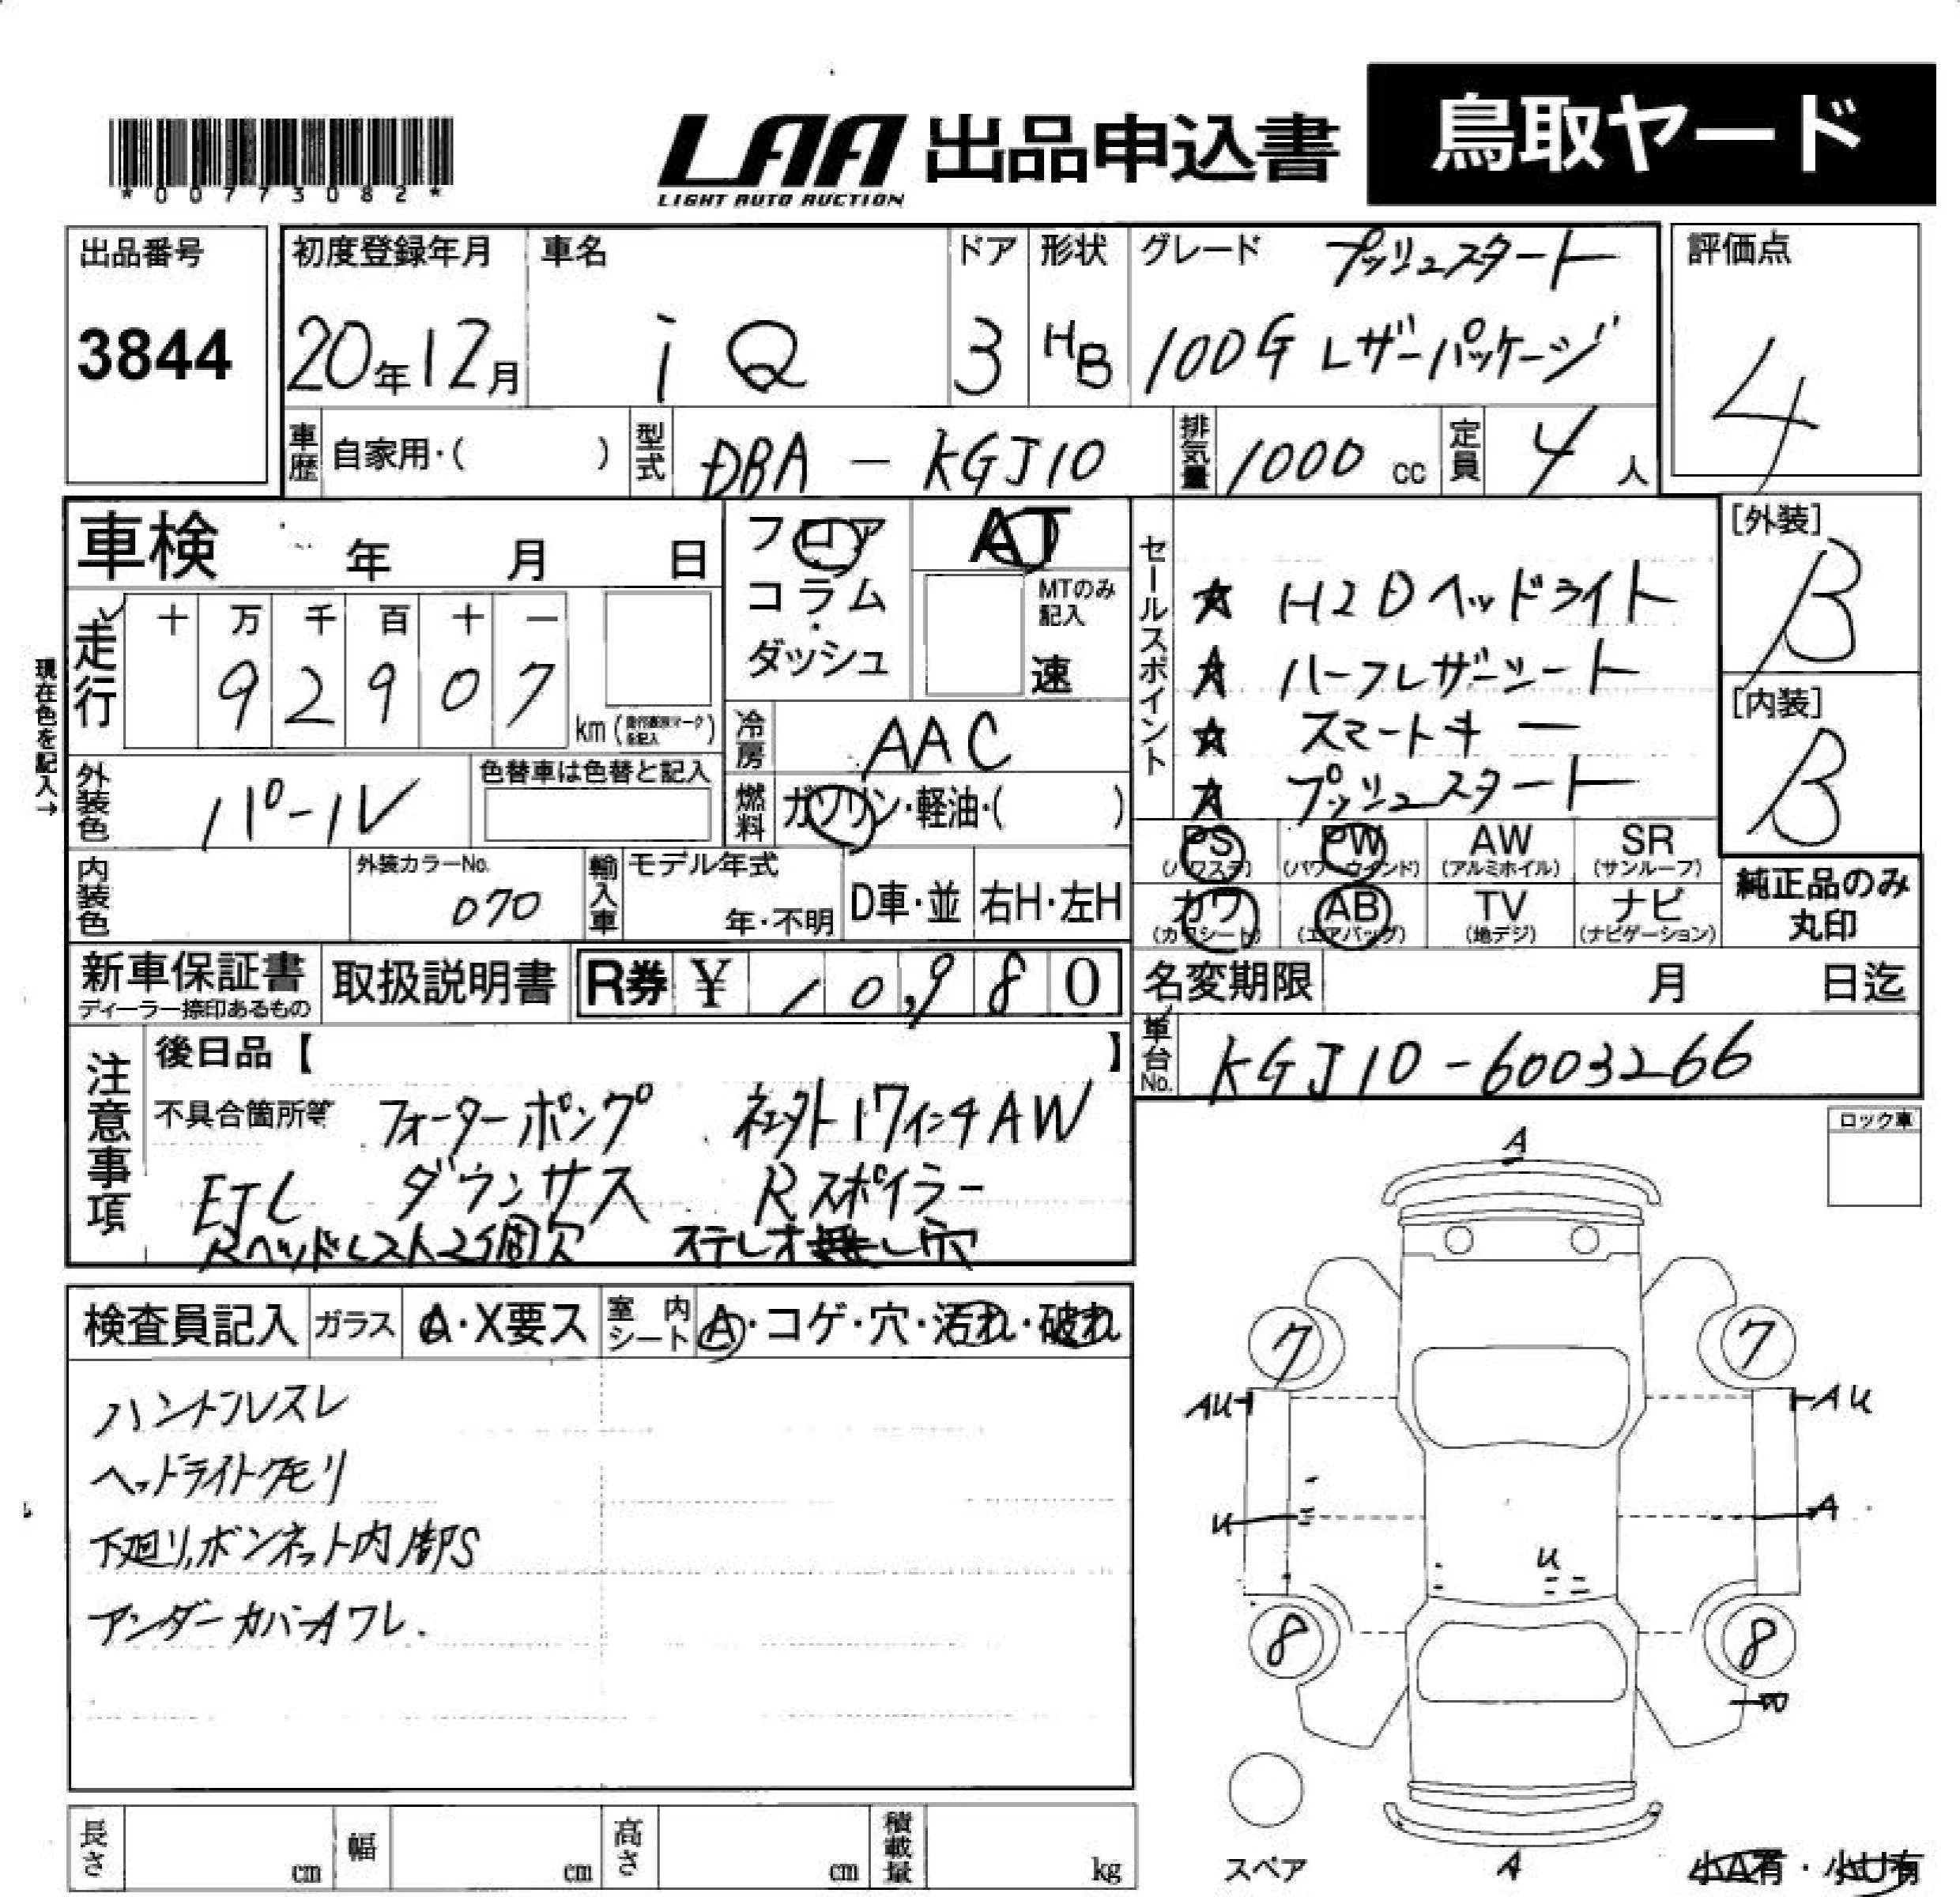 *00773082*
LAA 出品申込書 鳥取ヤード
LIGHT AUTO AUCTION
出品番号 初度登録年月 車名 ドア 形状 グレード プッシュスタート 評価点
3844 20年12月 iQ 3 HB 100G レザーパッケージ 4
車歴 自家用・( ) 型式 DBA - KGJ10 排気量 1000 cc 定員 4 人
車検 年 月 日 フロア AT
コラム MTのみ記入
ダッシュ 速
セールスポイント
★ HID ヘッドライト
★ ハーフレザーシート
★ スマートキー
★ プッシュスタート
[外装]
B
[内装]
B
現在色を記入→
走行 十 万 千 百 十 一
9 2 9 0 7 km
冷房 AAC
外装色 パール 色替車は色替と記入 燃料 ガソリン・軽油・( )
内装色 外装カラーNo. 070 輸入車 モデル年式 年・不明 D車・並 右H・左H
PS (パワステ) PW (パワーウインド) AW (アルミホイル) SR (サンルーフ)
カワ (カワシート) AB (エアバッグ) TV (地デジ) ナビ (ナビゲーション)
純正品のみ
丸印
新車保証書 取扱説明書 R券 ¥ 10,980 名変期限 月 日迄
ディーラー捺印あるもの
車台No. KGJ10-6003266
注意事項
後日品【 】
不具合箇所等 ウォーターポンプ 社外17インチAW
ETC ダウンサス Rスポイラー
Rヘッドレスト2個欠 ステレオ無し穴
ロック車
検査員記入 ガラス A・X要ス 室内シート A・コゲ・穴・汚れ・破れ
ハンドルスレ
ヘッドライトクモリ
下廻り、ボンネット内部S
アンダーカバーワレ.
A
7 7
AU AU
U A
U
8 8
スペア A 小A有・小U有
長さ cm 幅 cm 高さ cm 積載量 kg